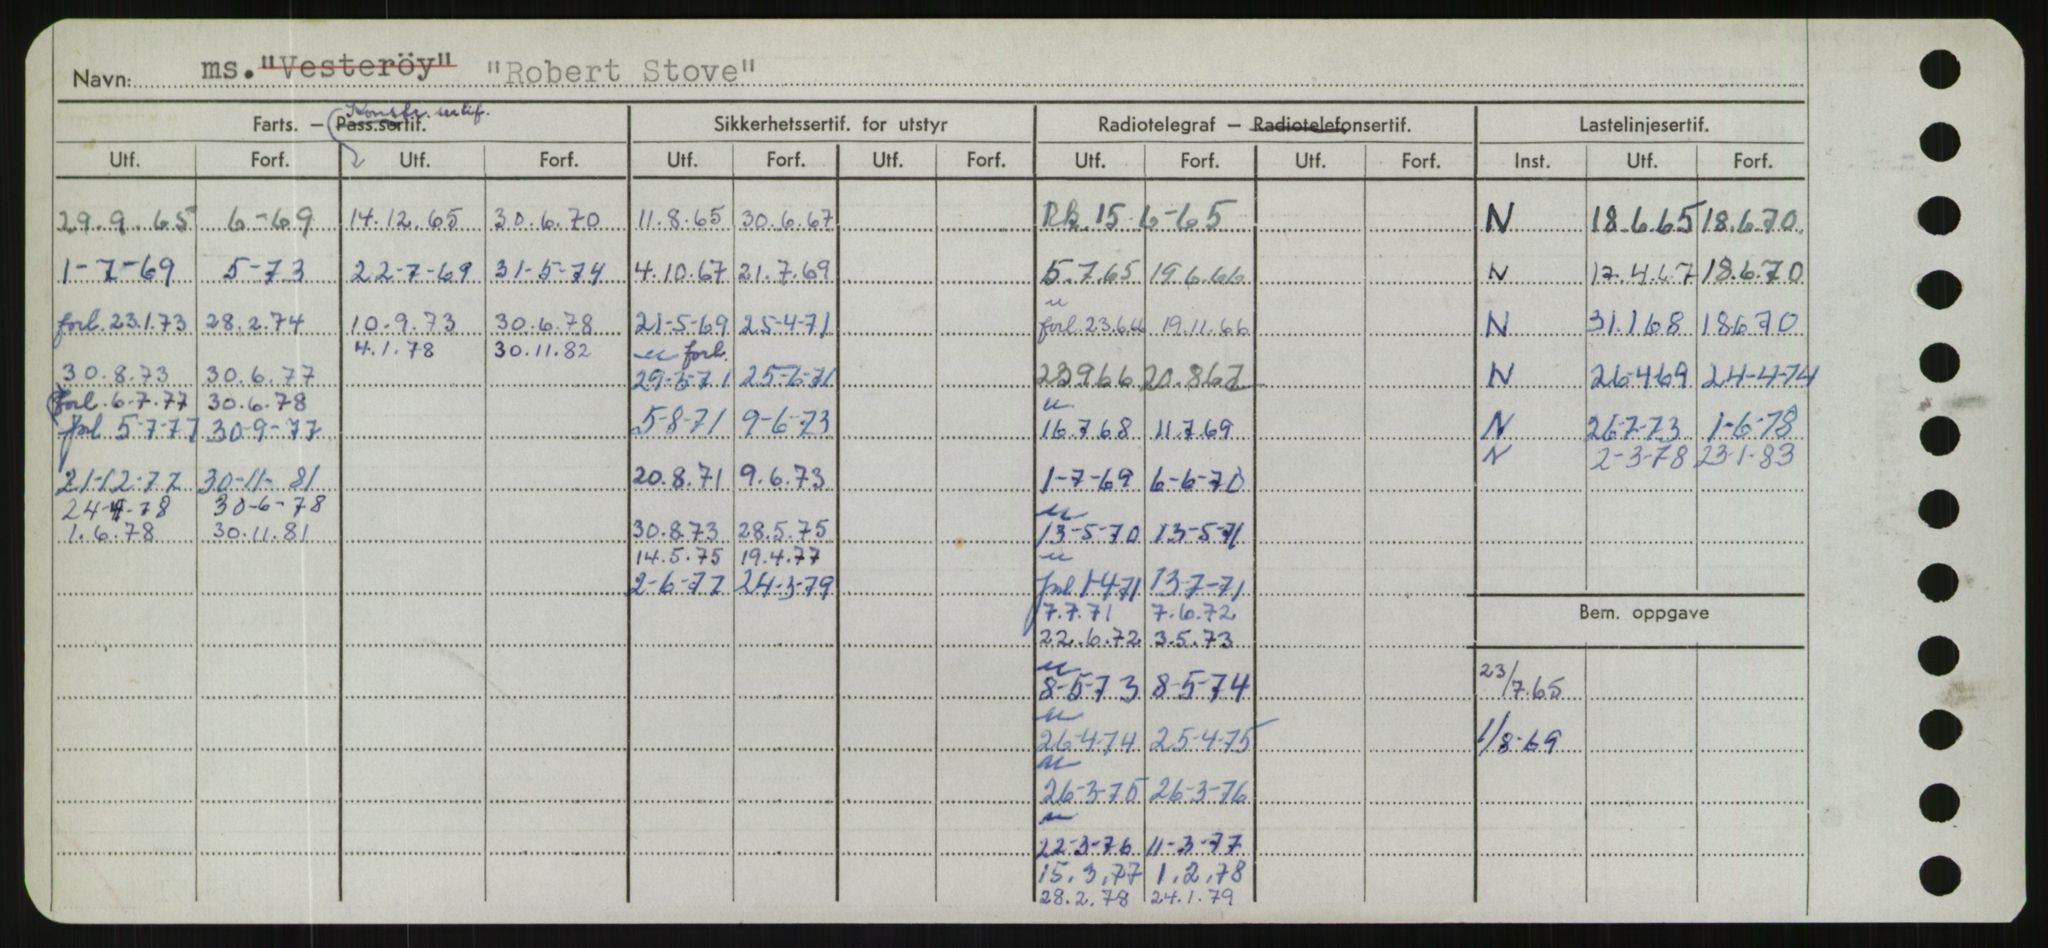 Navn: ms. "Vesteröy" "Robert Stove"
Konstr. sertif.
Farts. – Pass.sertif. Sikkerhetssertif. for utstyr Radiotelegraf – Radiotelefonsertif. Lastelinjesertif.
Utf. Forf. Utf. Forf. Utf. Forf. Utf. Forf. Utf. Forf. Utf. Forf. Inst. Utf. Forf.
29.9.65 6-69 14.12.65 30.6.70 11.8.65 30.6.67 Rk. 15 6-65 N 18.6.65 18.6.70.
1-7-69 5-73 22-7-69 31-5-74 4.10.67 21.7.69 5.7.65 19.6.66 N 17.4.67 18.6.70
forl. 23.1.73 28.2.74 10.9.73 30.6.78 21-5-69 25-4-71 forl. 23.6.66 19.11.66 N 31.1.68 18670
4.1.78 30.11.82 forl.
30.8.73 30.6.77 29-5-71 25-6-71 23966 20.867 N 26-4-69 24-4-74
forl. 6-7.77 30.6.78
forl 5-7-77 30-9-77 5-8-71 9-6-73 16.768 11.769 N 26-7-73 1-6-78
N 2-3-78 23-1-83
21-12-77 30-11-81 20.8.71 9.6.73 1-7-69 6-6-70
24-4-78 30-6-78
1.6.78 30.11.81 30.8.73 28.5.75 13-5-70 13-5-71
14.5.75 19.4.77
2-6-77 24-3-79 forl 1-4-71 13-7-71
7.7.71 7.6.72 Bem. oppgave
22.6.72 3.5.73
8-5-73 8-5-74 23/7.65
26-4-74 25-4-75 1/8-69
26-3-75 26-3-76
22-3-76 11-3-77
15.3.77 1.2.78
28.2.78 24.1.79